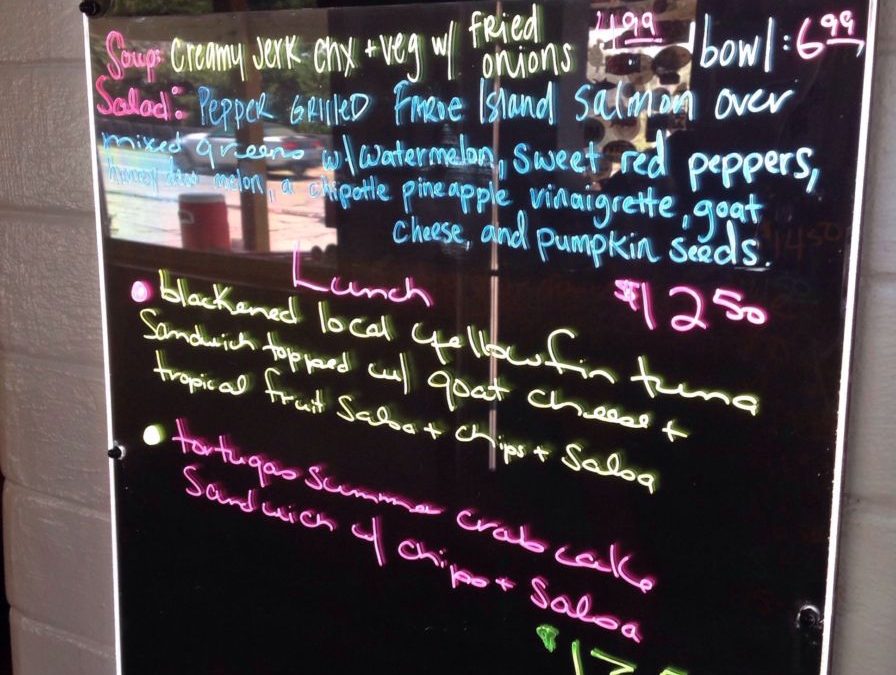 Soup: Creamy Jerk chx + veg w/ Fried onions 4.99 bowl: 6.99
Salad: PEPPER GRILLED FAROE Island Salmon over
mixed greens w/ watermelon, sweet red peppers,
honey dew melon, a chipotle pineapple vinaigrette, goat
cheese, and pumpkin seeds.
Lunch $12.50
blackened local yellowfin tuna
Sandwich topped w/ goat cheese +
tropical fruit Salsa + chips + Salsa
tortugas Summer crab cake
Sandwich w/ chips + Salsa